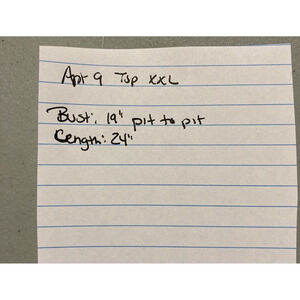 Apt 9 Top XXL
Bust: 19" pit to pit
Length: 24"